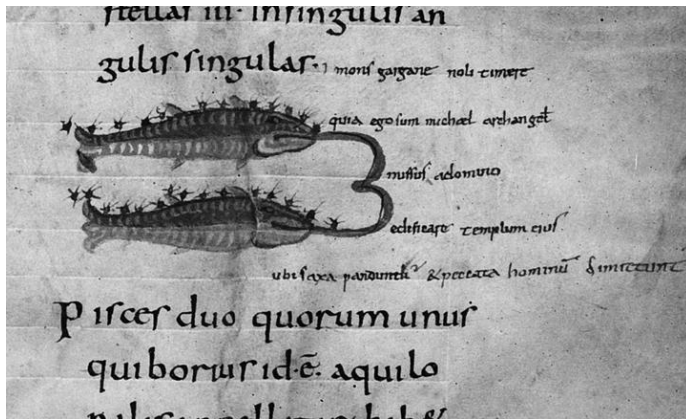 stellas iii. In singulis an
gulis singulas.
mons gargane noli timere
quia ego sum michael archangel
missus a domino
edificare templum eius
ubi saxa panduntur & peccata hominum dimittunt
Pisces duo quorum unus
qui borius id. ē. aquilo